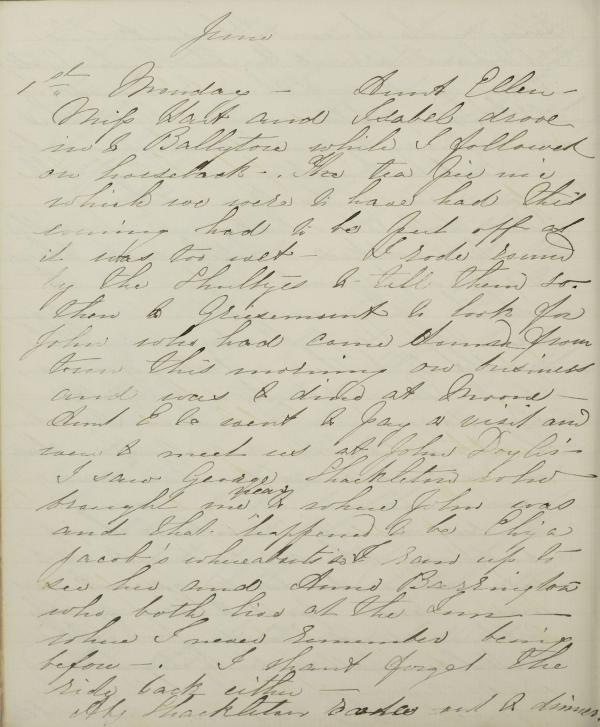 June
1st Monday - Aunt Ellen -
Miss Hart and Isabel drove
in to Ballytore while I followed
on horseback -. The tea pic nic
which we were to have had this
evening had to be put off as
it was too wet - I rode round
by the Shultyes to tell them so.
then to Griesemount to look for
John who had come down from
town this morning on business
and was to dine at Moone -
Aunt E &c went to pay a visit and
were to meet us at John Doyle's -
I saw George Shackleton who
brought me near to where John was
and that happened to be Eliza
Jacob's whereabouts so I ran up to
see her and Anne Barrington
who both live at the Inn -
where I never remember being
before -. I shant forget the
ride back either -
Shackleton rode out to dinner